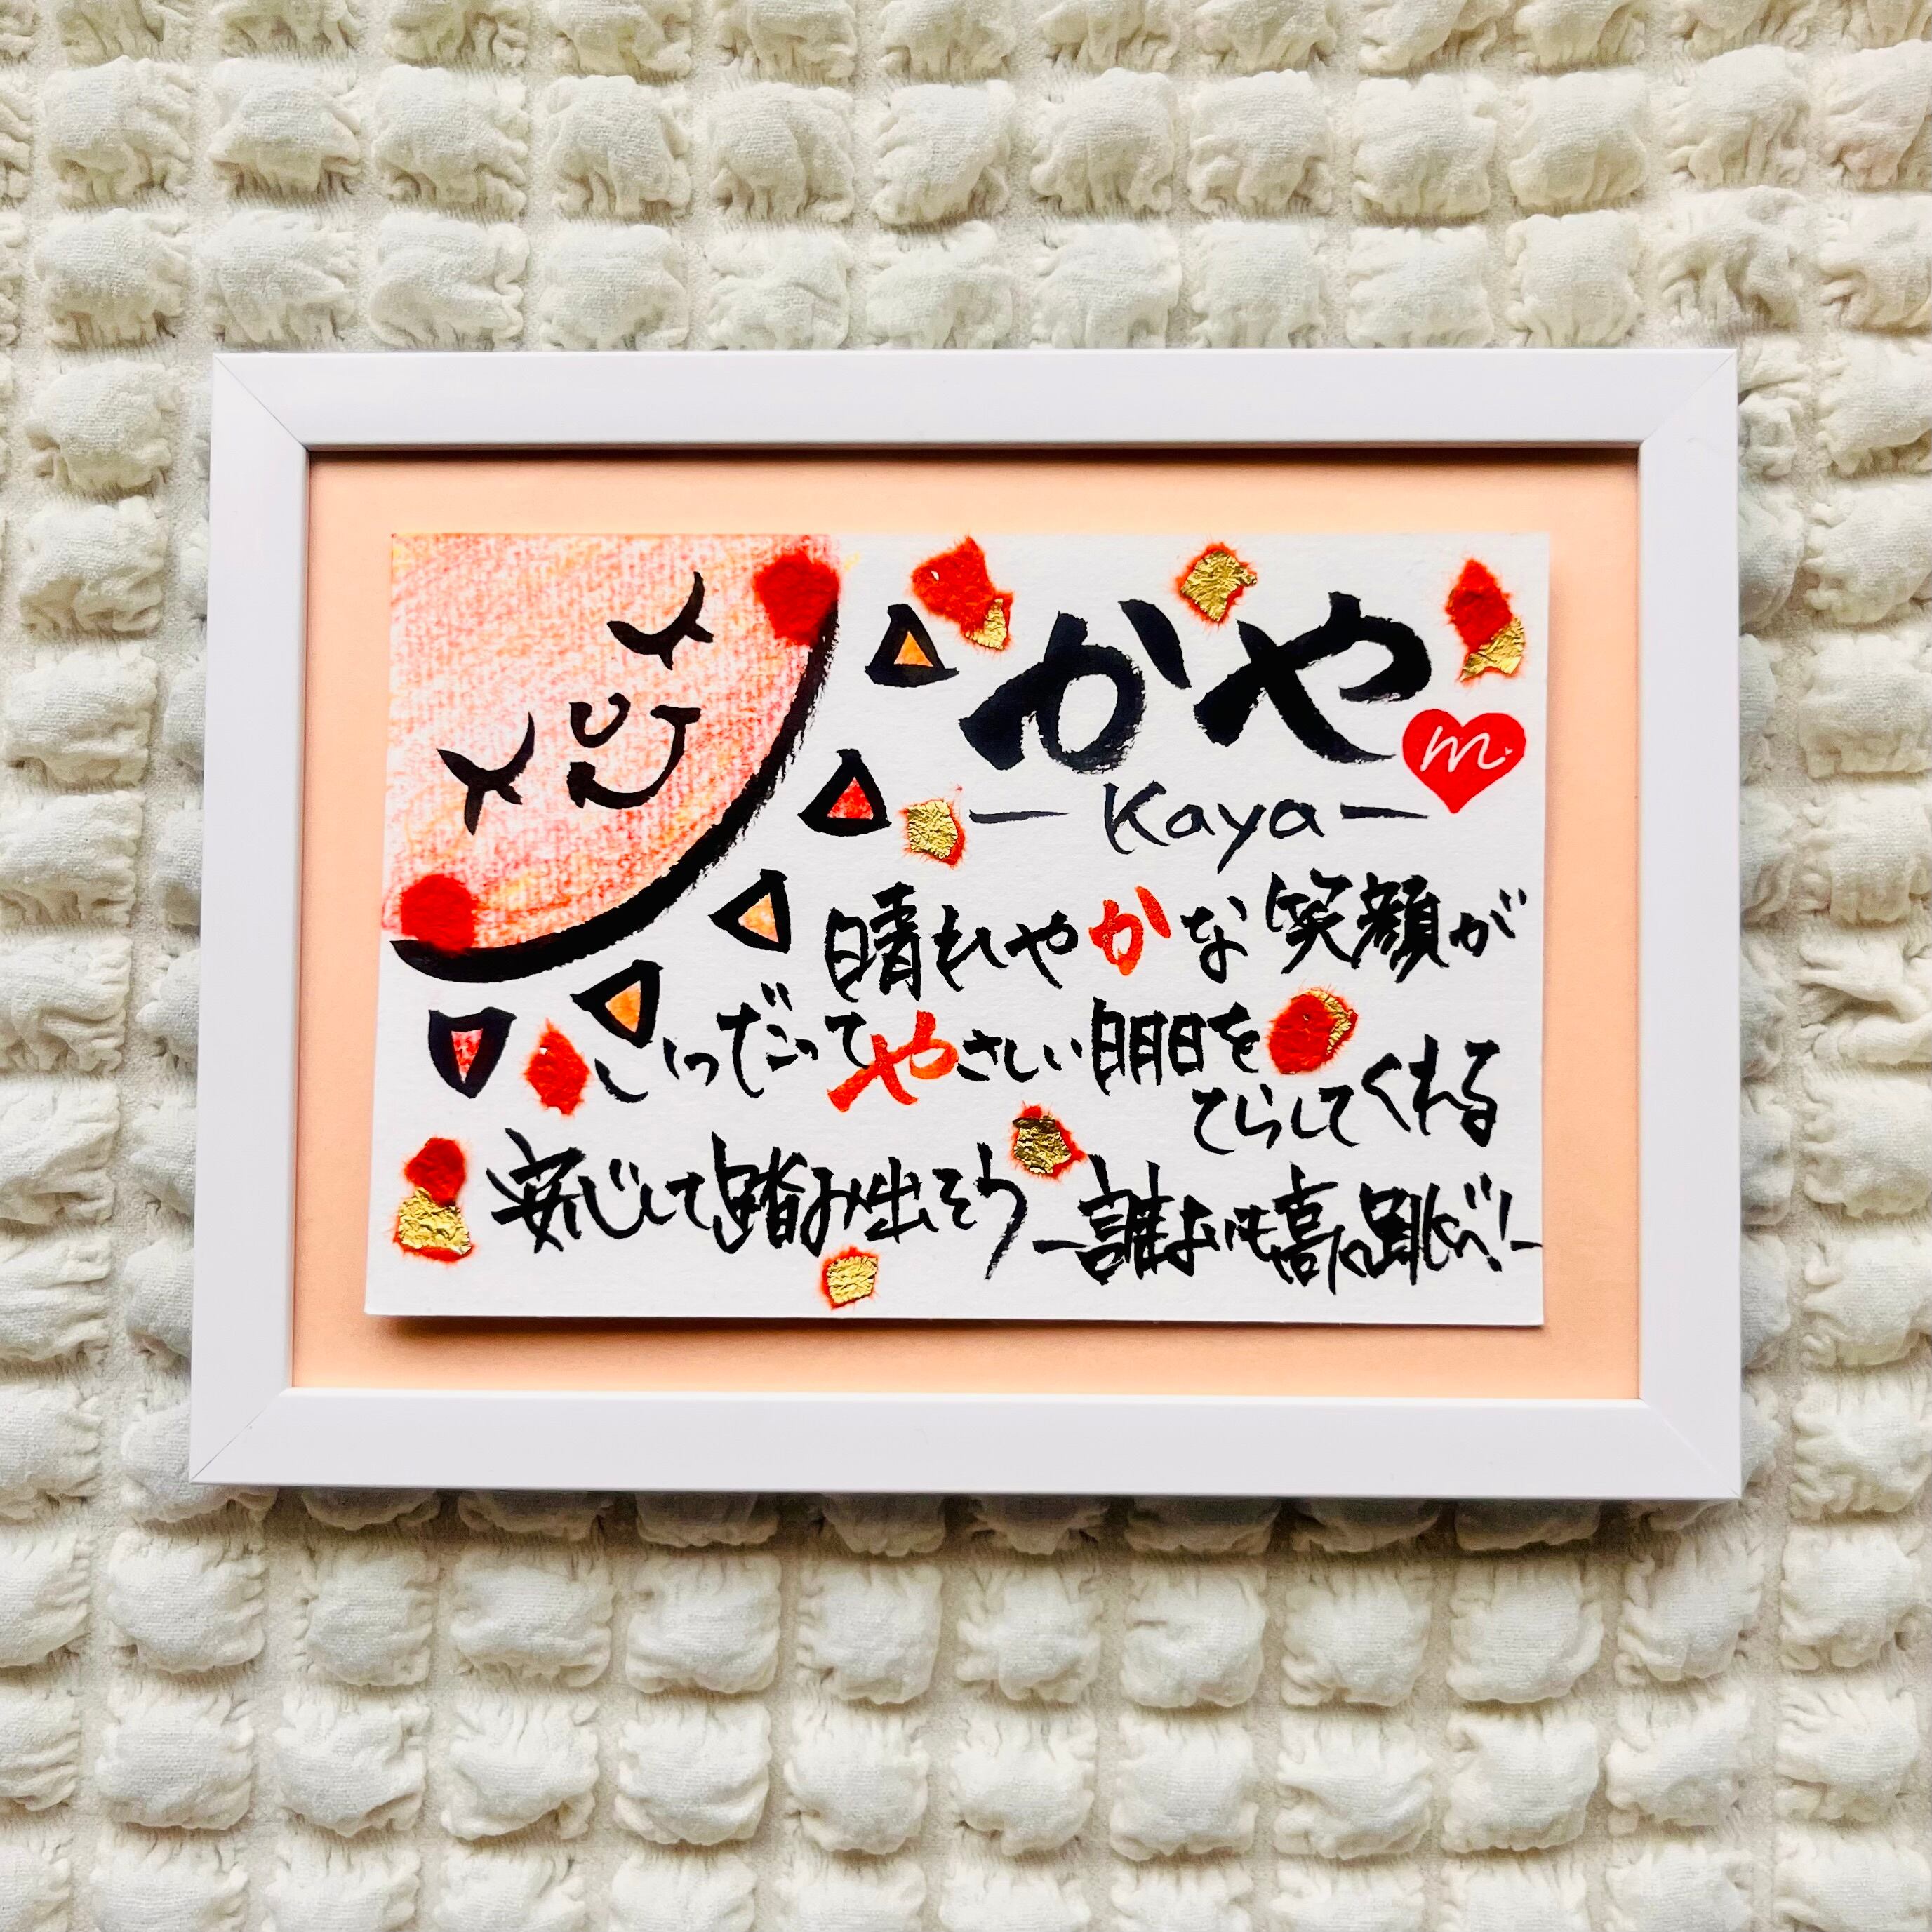 かや
m.
ーKayaー
晴れやかな笑顔が
いつだってやさしい明日を
てらしてくれる
安心して踏み出そう
ー誰よりも高く跳べ!ー